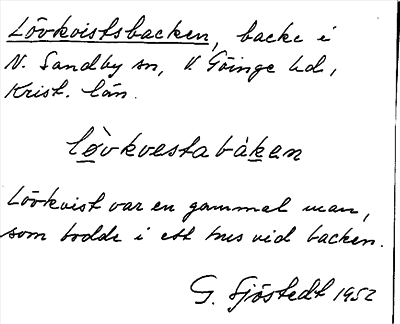 Lövkvistsbacken, backe i
N. Sandby sn, V. Göinge hd,
Krist. län.
lòvkvestabáken
Lövkvist var en gammal man,
som bodde i ett hus vid backen.
G. Sjöstedt 1952